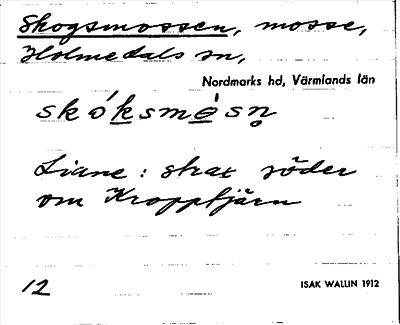 Skogsmossen, mosse,
Holmedals sn,
Nordmarks hd, Värmlands län
skóksmòsn̥
Liane : strax söder
om Kropptjärn
12
ISAK WALLIN 1912